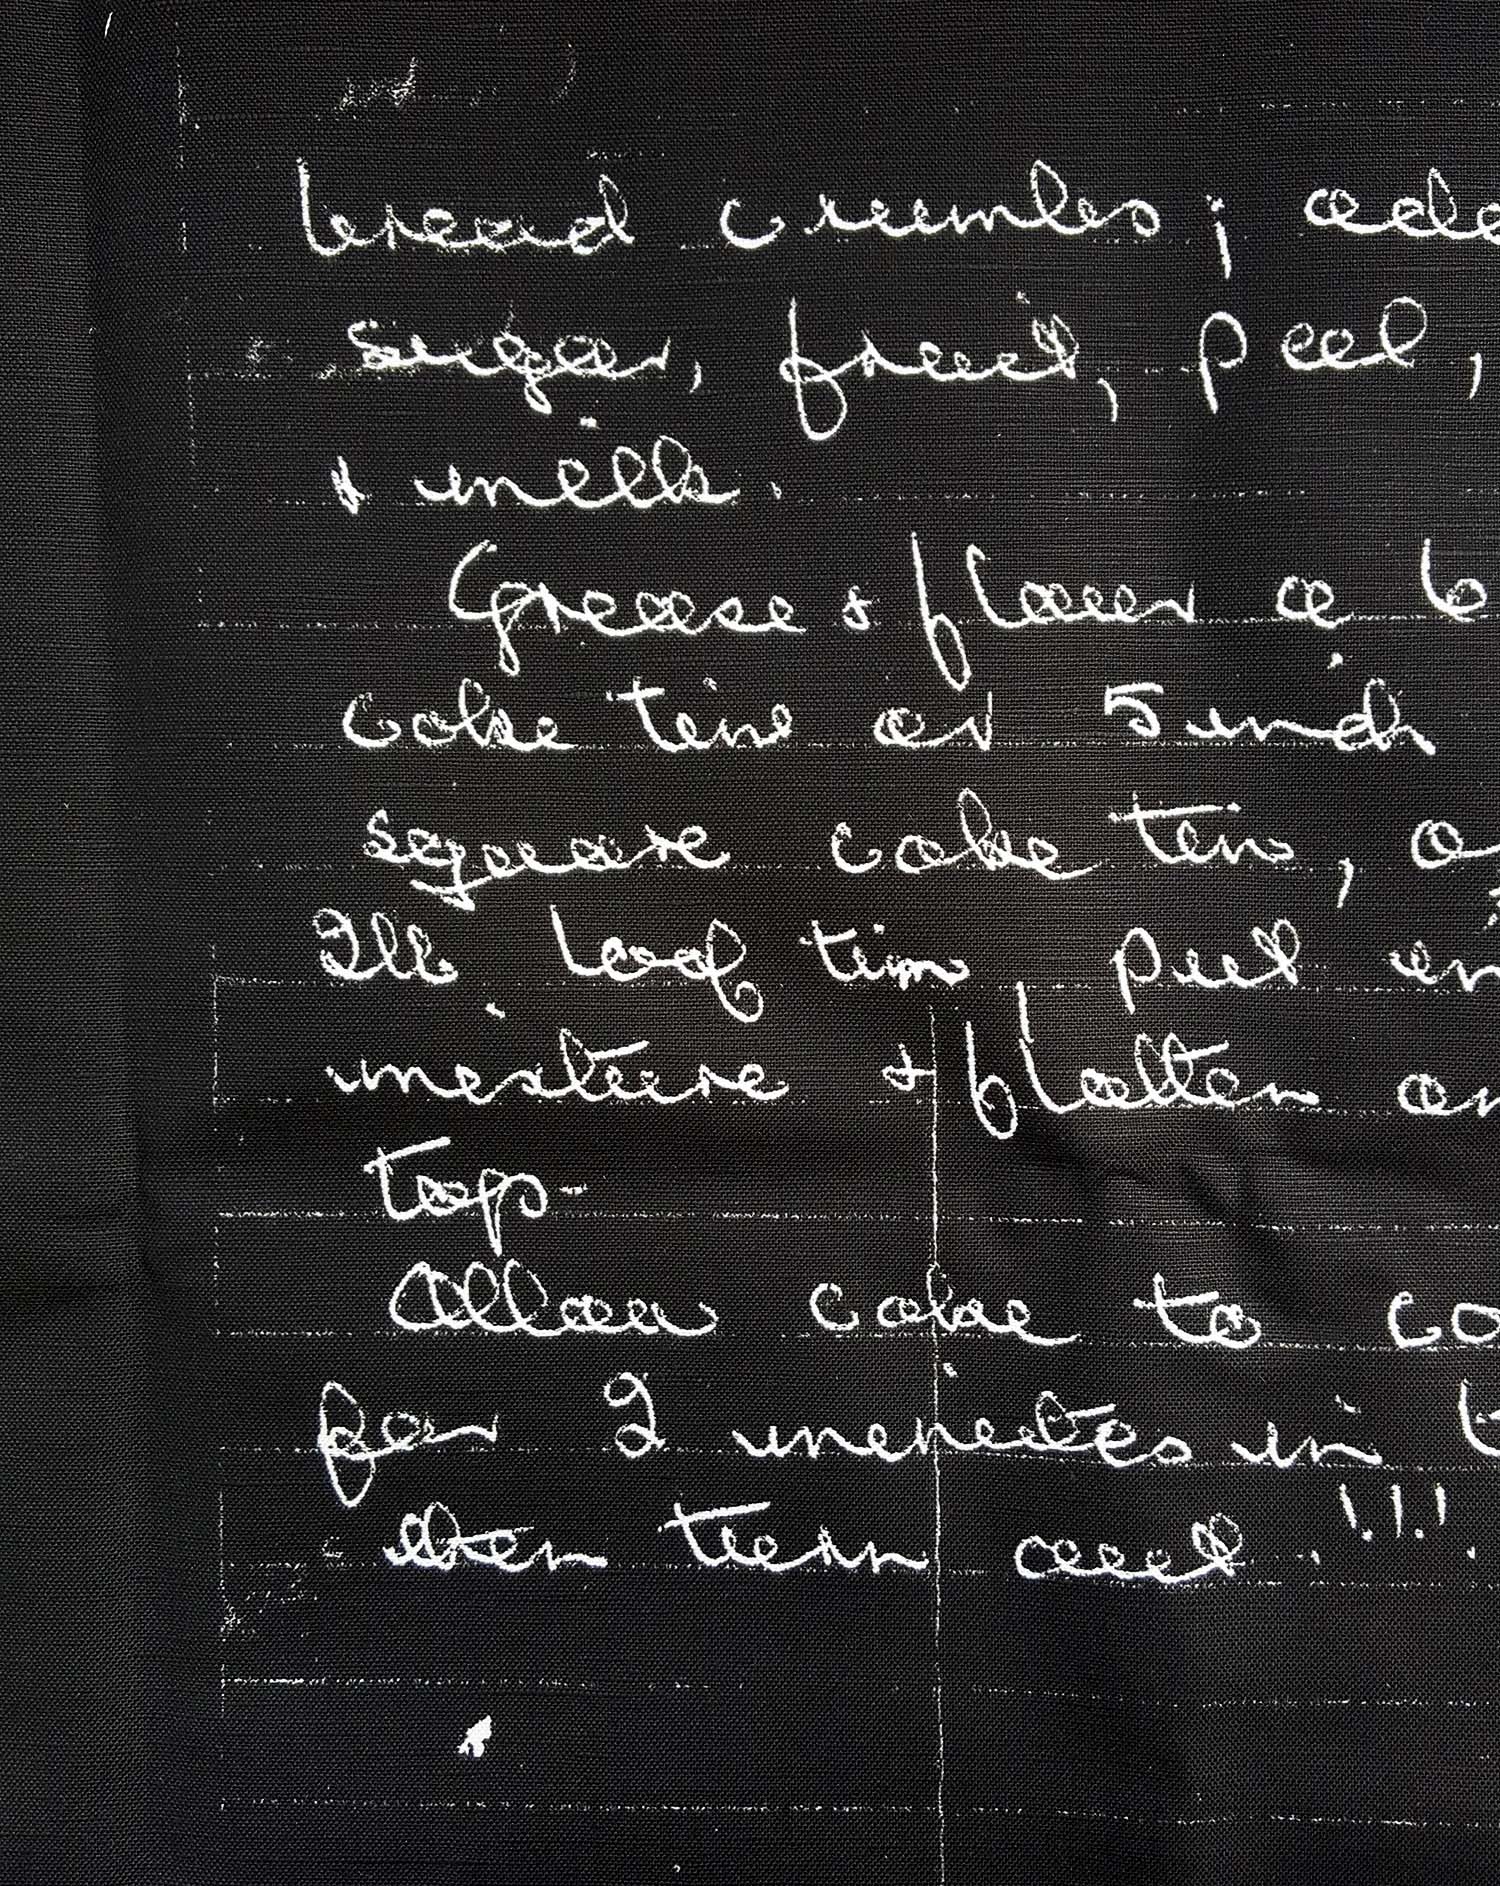 bread crumbs; add
sugar, fruit, peel,
& milk.
Grease & flour a 6
cake tin or 5 inch
square cake tin, o
2lb loaf tin, put in
mixture & flatten on
top.
Allow cake to co
for 2 minutes in t
then turn out.!!!.